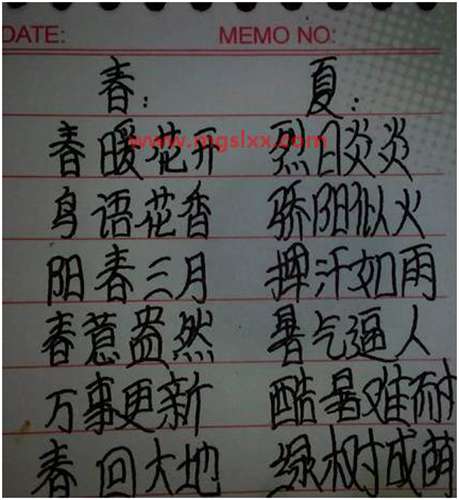 DATE: MEMO NO:
春: 夏:
www.mgslxx.com
春暖花开 烈日炎炎
鸟语花香 骄阳似火
阳春三月 挥汗如雨
春意盎然 暑气逼人
万事更新 酷暑难耐
春回大地 绿树成荫